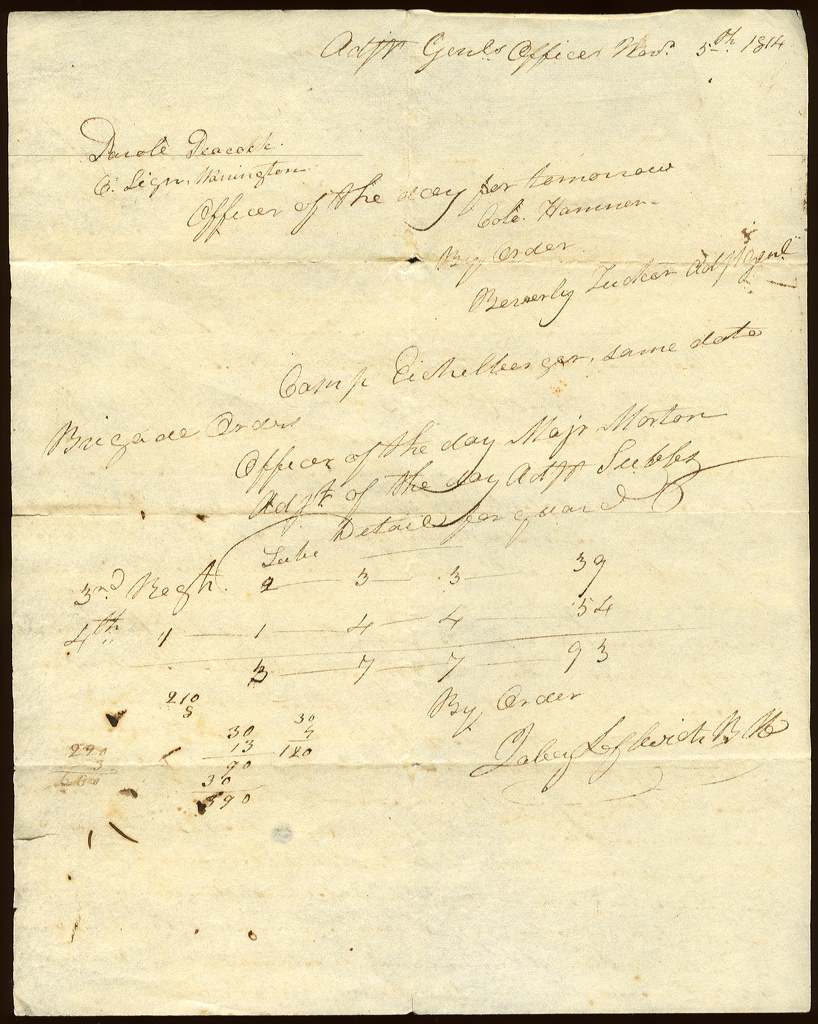 Adjt Genls Office Novr 5th 1814
Parole Peacock
C. Sign. Warrington
Officer of the day for tomorrow
Colo. Hamner
By Order
Beverly Tucker Adjt Genl
Camp Eichelberger, same date
Brigade Orders
Officer of the day Majr Morton
Adjt of the day Adjt Tubbs
Detail for guard
Sube
3rd Regt. 2 — 3 — 3 — 39
4th " — 1 — 4 — 4 — 54
3 — 7 — 7 — 93
By Order
Jabez Leftwich B
210
3
30
13
90
30
390
30
4
120